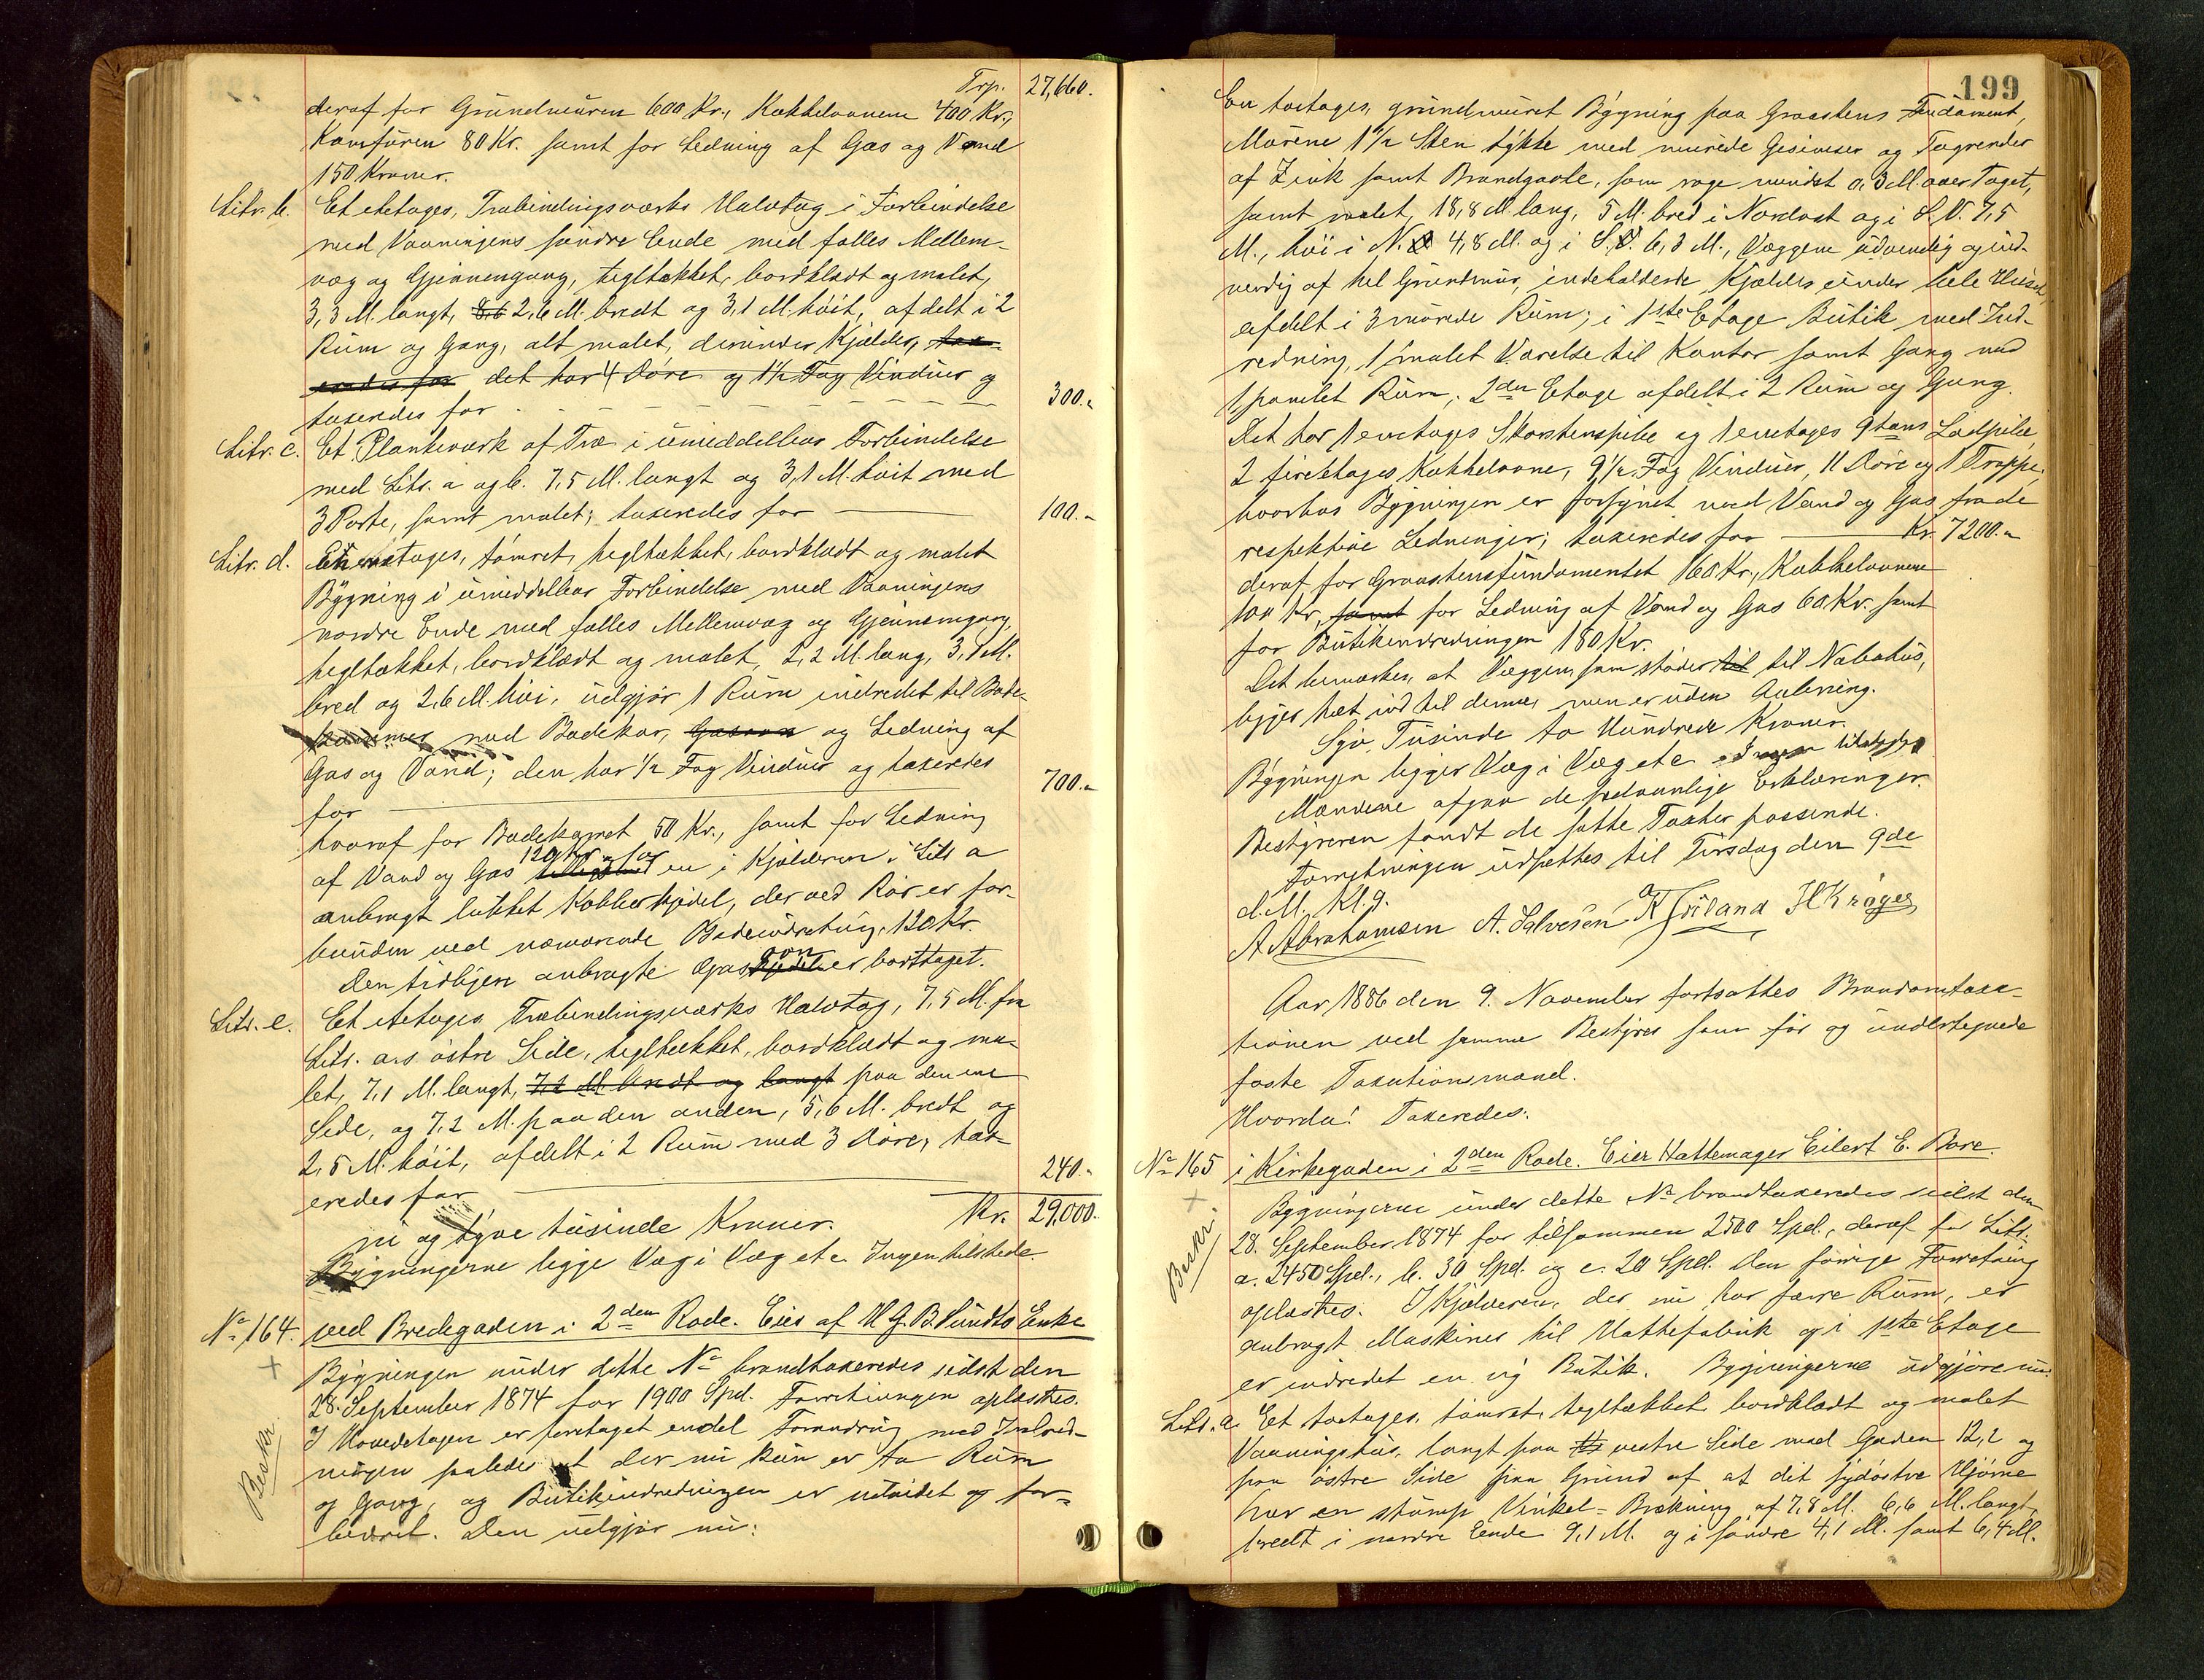 Trp. 27,660.
deraf for Grundmuren 600 Kr., Kakkelovnene 400 Kr.,
Komfuren 80 Kr. samt for Ledning af Gas og Vand
150 Kroner.
Litr. b. Et etetages, Træbindingsværks Halvtag i Forbindelse
med Vaaningens søndre Ende med fælles Mellem-
væg og Gjennemgang, tegltækket, bordklædt og malet,
3,3 M. langt, 8,6 2,6 M. bredt og 3,1 M. høit, afdelt i 2
Rum og Gang, alt malet, derunder Kjelder, tax-
eredes for det har 4 Døre og 1½ Fag Vinduer og
taxeredes for 300.-
Litr. c. Et Plankeværk af Træ i umiddelbar Forbindelse
med Litr. a og b. 7,5 M. langt og 3,1 M. høit med
3 Porte, samt malet; taxeredes for 100.-
Litr. d. En etetages, tømret, tegltækket, bordklædt og malet
Bygning i umiddelbar Forbindelse med Vaaningens
nordre Ende med fælles Mellemvæg og Gjennemgang,
tegltækket, bordklædt og malet, 2,2 M. lang, 3,1 M.
bred og 2,6 M. høi, udgjør 1 Rum indredet til Bade-
kammer med Badekar, Gasovn og Ledning af
Gas og Vand; den har ½ Fag Vinduer og taxeredes
for 700.-
hvoraf for Badekarret 50 Kr., samt for Ledning
af Vand og Gas 120 Kr. og for en i Kjælderen i Litr a
anbragt lukket Kobberkjedel, der ved Rør er for-
bunden med nærværende Badeindretning, 120 Kr.
Den tidligere anbragte Gasovn er borttaget.
Litr. e. Et etetages Træbindingsværks Halvtag, 7,5 M. fra
Litr. a.s østre Side, tegltækket, bordklædt og ma-
let, 7,1 M. langt, 7,2 M. bredt og langt paa den ene
Side, og 7,2 M. paa den anden, 5,6 M. bredt og
2,5 M. høit, afdelt i 2 Rum med 3 Døre, tax-
eredes for 240.-
Kr. 29,000.
ni og tyve tusinde Kroner.
Bygningerne ligge Væg i Væg etc. Ingen tilstede.
No 164. ved Bredegaden i 2den Rode. Eies af H G. B. Sundts Enke
Bygningen under dette No brandtaxeredes sidst den
28. September 1874 for 1900 Spd. Forretningen oplæstes.
I Hovedetagen er foretaget endel Forandring med Indred-
ningen saaledes at der nu kun er to Rum
og Gang, og Butikindredningen er utvidet og for-
bedret. Den udgjør nu:
Beskr.
199
En toetages, grundmuret Bygning paa Graastens Fundament,
Murene 1½ Sten tykke med murede Gesimser og Tagrender
af Zink samt Brandgavle, som rage mindst 0,3 M. over Taget,
samt malet, 18,8 M. lang, 5 M. bred i Nordost og i S.V. 7,5
M., høi i N.O 4,8 M. og i S.V. 6,3 M., Væggene udvendig og ind-
vendig af hel Grundmur, indeholdende Kjælder under hele Huset,
afdelt i 3 murede Rum; i 1ste Etage Butik med Ind-
redning, 1 malet Værelse til Kontor samt Gang med
1 panelet Rum; 2den Etage afdelt i 2 Rum og Gang.
Det har 1 enetages Skorstenspibe og 1 enetages 9tans Lodpibe,
2 fireetages Kakkelovne, 9½ Fag Vinduer, 11 Døre og 1 Trappe,
hvorhos Bygningen er forsynet med Vand og Gas fra de
respektive Ledninger; taxeredes for Kr. 7200.-
deraf for Graastensfundamentet 160 Kr., Kakkelovnene
100 Kr, samt for Ledning af Vand og Gas 60 Kr. samt
for Butikindredningen 180 Kr.
Det bemærkes, at Væggen, som støder til til Nabohus,
ligger tæt ind til denne, men er uden Aabning.
Syv Tusinde to Hundrede Kroner.
Bygningen ligger Væg i Væg etc Ingen tilstede
Mændene afgav de sedvanlige Erklæringer.
Bestyreren fandt de satte Taxter passende.
Forretningen udsættes til Tirsdag den 9de
d. M. Kl. 9.
A Abrahamsen A. Salvesen H Kröger
Aar 1886 den 9. November fortsattes Brandomtaxa-
tionen ved samme Bestyrer som før og undertegnede
faste Taxationsmænd.
Hvorda! Taxeredes:
No 165 i Kirkegaden i 2den Rode. Eier Hattemager Eilert E. Bore.
Bygningerne under dette No brandtaxeredes sidst den
28. September 1874 for tilsammen 2500 Spd., deraf for Litr.
a. 2450 Spd., b. 30 Spd. og c. 20 Spd. Den forrige Forretning
oplæstes. I Kjælderen, der nu har færre Rum, er
anbragt Maskiner til Hattefabrik og i 1ste Etage
er indredet en ny Butik. Bygningerne udgjøre nu:
Beskr.
Litr. a. Et toetages, tømret, tegltækket, bordklædt og malet
Vaaningshus, langt paa vestre Side mod Gaden 12,2 og
paa østre Side paa Grund af at det sydøstre Hjørne
har en stump Vinkel-Brækning af 7,8 M. 6,6 M. langt,
bredt i nordre Ende 9,1 M. og i søndre 4,1 M. samt 6,4 M.